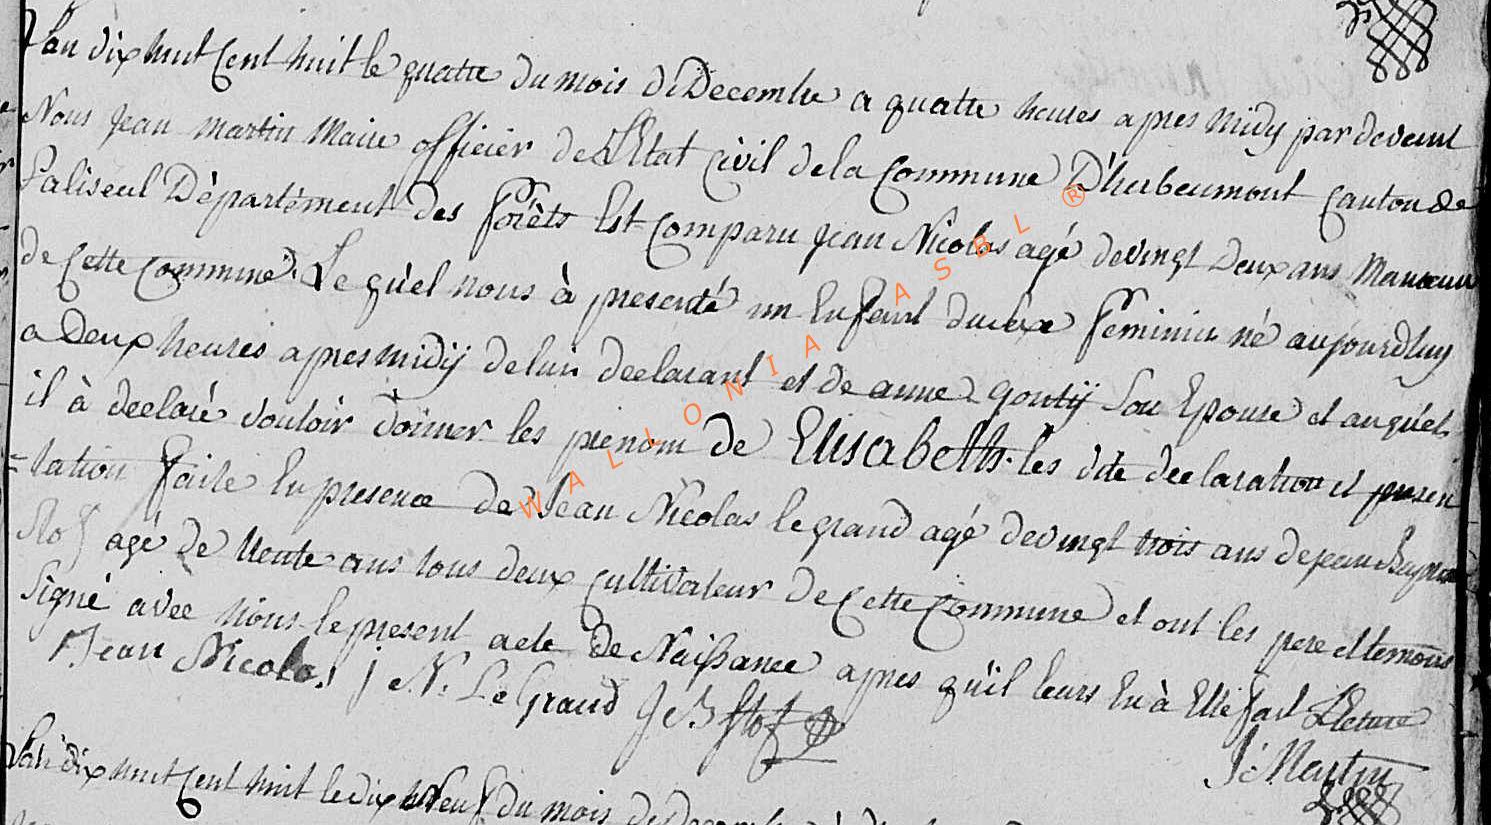 L'an dix huit Cent huit le quatre du mois de Decembre a quatre heures apres midy par devant
Nous Jean Martin Maire officier de L'Etat Civil de la Commune D'herbeumont Canton de
Paliseul Département des forêts Est Comparu Jean Nicolas agé de vingt Deux ans Manoeuvre
de Cette Commune Le quel nous à presenté un Enfant du sexe feminin né aujourdhuy
a Deux heures apres midij de lui declarant et de anne gontÿ Son Epouse et au quel
il à declaré vouloir doñner les prenom de Elisabeth. les dite declaration et presen
=tation faite En presence de Jean Nicolas le grand agé de vingt trois ans de jean Bapt
Slof agé de trente ans tous deux Cultivateur de Cette Commune et ont les pere et temoins
Signé avec Nous le present acte de Naissance apres qu'il leurs En à Etté fait Lecture
Jean Nicolas J N. Le Grand J B Slof
J: Martin
L'an dix huit Cent huit le dix Neuf du mois de decembre
WALLONIA ASBL ®